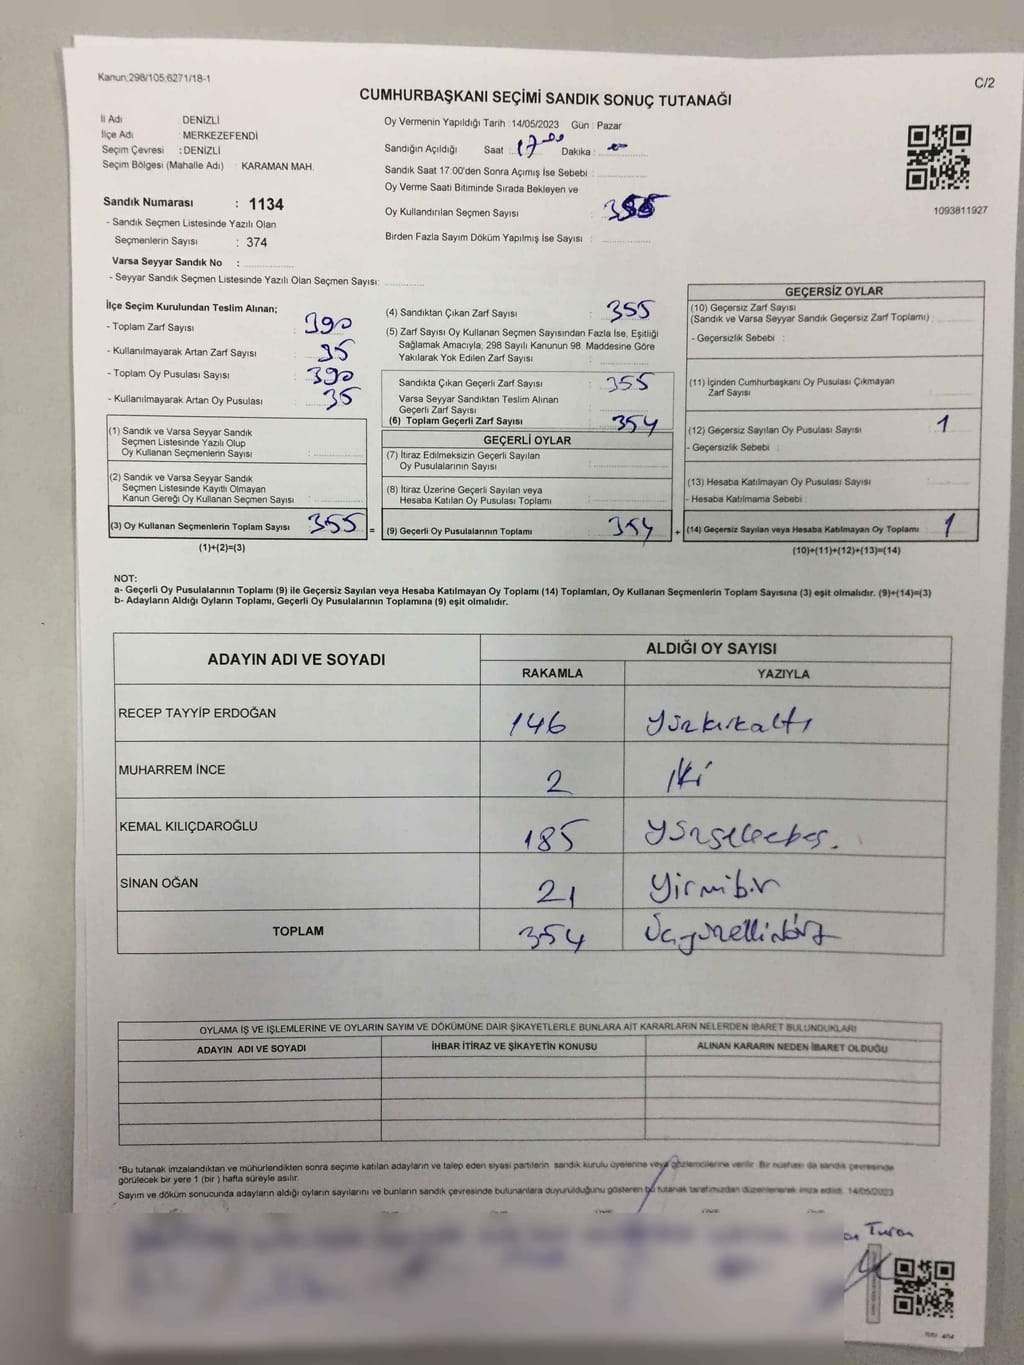 Kanun:298/105;6271/18-1
C/2
CUMHURBAŞKANI SEÇİMİ SANDIK SONUÇ TUTANAĞI
İl Adı : DENİZLİ
İlçe Adı : MERKEZEFENDİ
Seçim Çevresi : DENİZLİ
Seçim Bölgesi (Mahalle Adı) : KARAMAN MAH.
Sandık Numarası : 1134
- Sandık Seçmen Listesinde Yazılı Olan
Seçmenlerin Sayısı : 374
Varsa Seyyar Sandık No :
- Seyyar Sandık Seçmen Listesinde Yazılı Olan Seçmen Sayısı:
Oy Vermenin Yapıldığı Tarih : 14/05/2023 Gün : Pazar
Sandığın Açıldığı Saat : 17 Dakika :
Sandık Saat 17.00'den Sonra Açımış İse Sebebi :
Oy Verme Saati Bitiminde Sırada Bekleyen ve
Oy Kullandırılan Seçmen Sayısı :
Birden Fazla Sayım Döküm Yapılmış İse Sayısı :
1093811927
İlçe Seçim Kurulundan Teslim Alınan;
- Toplam Zarf Sayısı : 390
- Kullanılmayarak Artan Zarf Sayısı : 35
- Toplam Oy Pusulası Sayısı : 390
- Kullanılmayarak Artan Oy Pusulası : 35
(1) Sandık ve Varsa Seyyar Sandık
Seçmen Listesinde Yazılı Olup
Oy Kullanan Seçmenlerin Sayısı :
(2) Sandık ve Varsa Seyyar Sandık
Seçmen Listesinde Kayıtlı Olmayan
Kanun Gereği Oy Kullanan Seçmen Sayısı :
(3) Oy Kullanan Seçmenlerin Toplam Sayısı 355 =
(1)+(2)=(3)
(4) Sandıktan Çıkan Zarf Sayısı : 355
(5) Zarf Sayısı Oy Kullanan Seçmen Sayısından Fazla İse, Eşitliği
Sağlamak Amacıyla, 298 Sayılı Kanunun 98. Maddesine Göre
Yakılarak Yok Edilen Zarf Sayısı :
Sandıkta Çıkan Geçerli Zarf Sayısı : 355
Varsa Seyyar Sandıktan Teslim Alınan
Geçerli Zarf Sayısı :
(6) Toplam Geçerli Zarf Sayısı : 354
GEÇERLİ OYLAR
(7) İtiraz Edilmeksizin Geçerli Sayılan
Oy Pusulalarının Sayısı :
(8) İtiraz Üzerine Geçerli Sayılan veya
Hesaba Katılan Oy Pusulası Toplamı :
(9) Geçerli Oy Pusulalarının Toplamı : 354 +
GEÇERSİZ OYLAR
(10) Geçersiz Zarf Sayısı
(Sandık ve Varsa Seyyar Sandık Geçersiz Zarf Toplamı) :
- Geçersizlik Sebebi :
(11) İçinden Cumhurbaşkanı Oy Pusulası Çıkmayan
Zarf Sayısı
(12) Geçersiz Sayılan Oy Pusulası Sayısı : 1
- Geçersizlik Sebebi :
(13) Hesaba Katılmayan Oy Pusulası Sayısı :
- Hesaba Katılmama Sebebi :
(14) Geçersiz Sayılan veya Hesaba Katılmayan Oy Toplamı : 1
(10)+(11)+(12)+(13)=(14)
NOT:
a- Geçerli Oy Pusulalarının Toplamı (9) ile Geçersiz Sayılan veya Hesaba Katılmayan Oy Toplamı (14) Toplamları, Oy Kullanan Seçmenlerin Toplam Sayısına (3) eşit olmalıdır. (9)+(14)=(3)
b- Adayların Aldığı Oyların Toplamı, Geçerli Oy Pusulalarının Toplamına (9) eşit olmalıdır.
ADAYIN ADI VE SOYADI
ALDIĞI OY SAYISI
RAKAMLA YAZIYLA
RECEP TAYYİP ERDOĞAN 146 Yüzkırkaltı
MUHARREM İNCE 2 İki
KEMAL KILIÇDAROĞLU 185 Yüzseksenbeş.
SİNAN OĞAN 21 Yirmibir
TOPLAM 354 Üçyüzellidört
OYLAMA İŞ VE İŞLEMLERİNE VE OYLARIN SAYIM VE DÖKÜMÜNE DAİR ŞİKAYETLERLE BUNLARA AİT KARARLARIN NELERDEN İBARET BULUNDUKLARI
ADAYIN ADI VE SOYADI İHBAR İTİRAZ VE ŞİKAYETİN KONUSU ALINAN KARARIN NEDEN İBARET OLDUĞU
*Bu tutanak imzalandıktan ve mühürlendikten sonra seçime katılan adayların ve talep eden siyasi partilerin sandık kurulu üyelerine veya gözlemcilerine verilir. Bir nüshası da sandık çevresinde
görülecek bir yere 1 (bir ) hafta süreyle asılır.
Sayım ve döküm sonucunda adayların aldığı oyların sayılarını ve bunların sandık çevresinde bulunanlara duyurulduğunu gösteren bu tutanak tarafımızdan düzenlenerek imza edildi. 14/05/2023
Turan